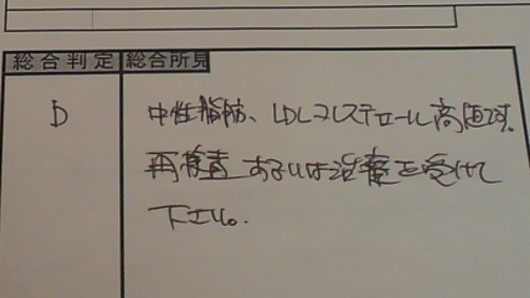 総合判定 総合所見
D 中性脂肪、LDLコレステロール高値です。
再検査あるいは治療を受けて
下さい。